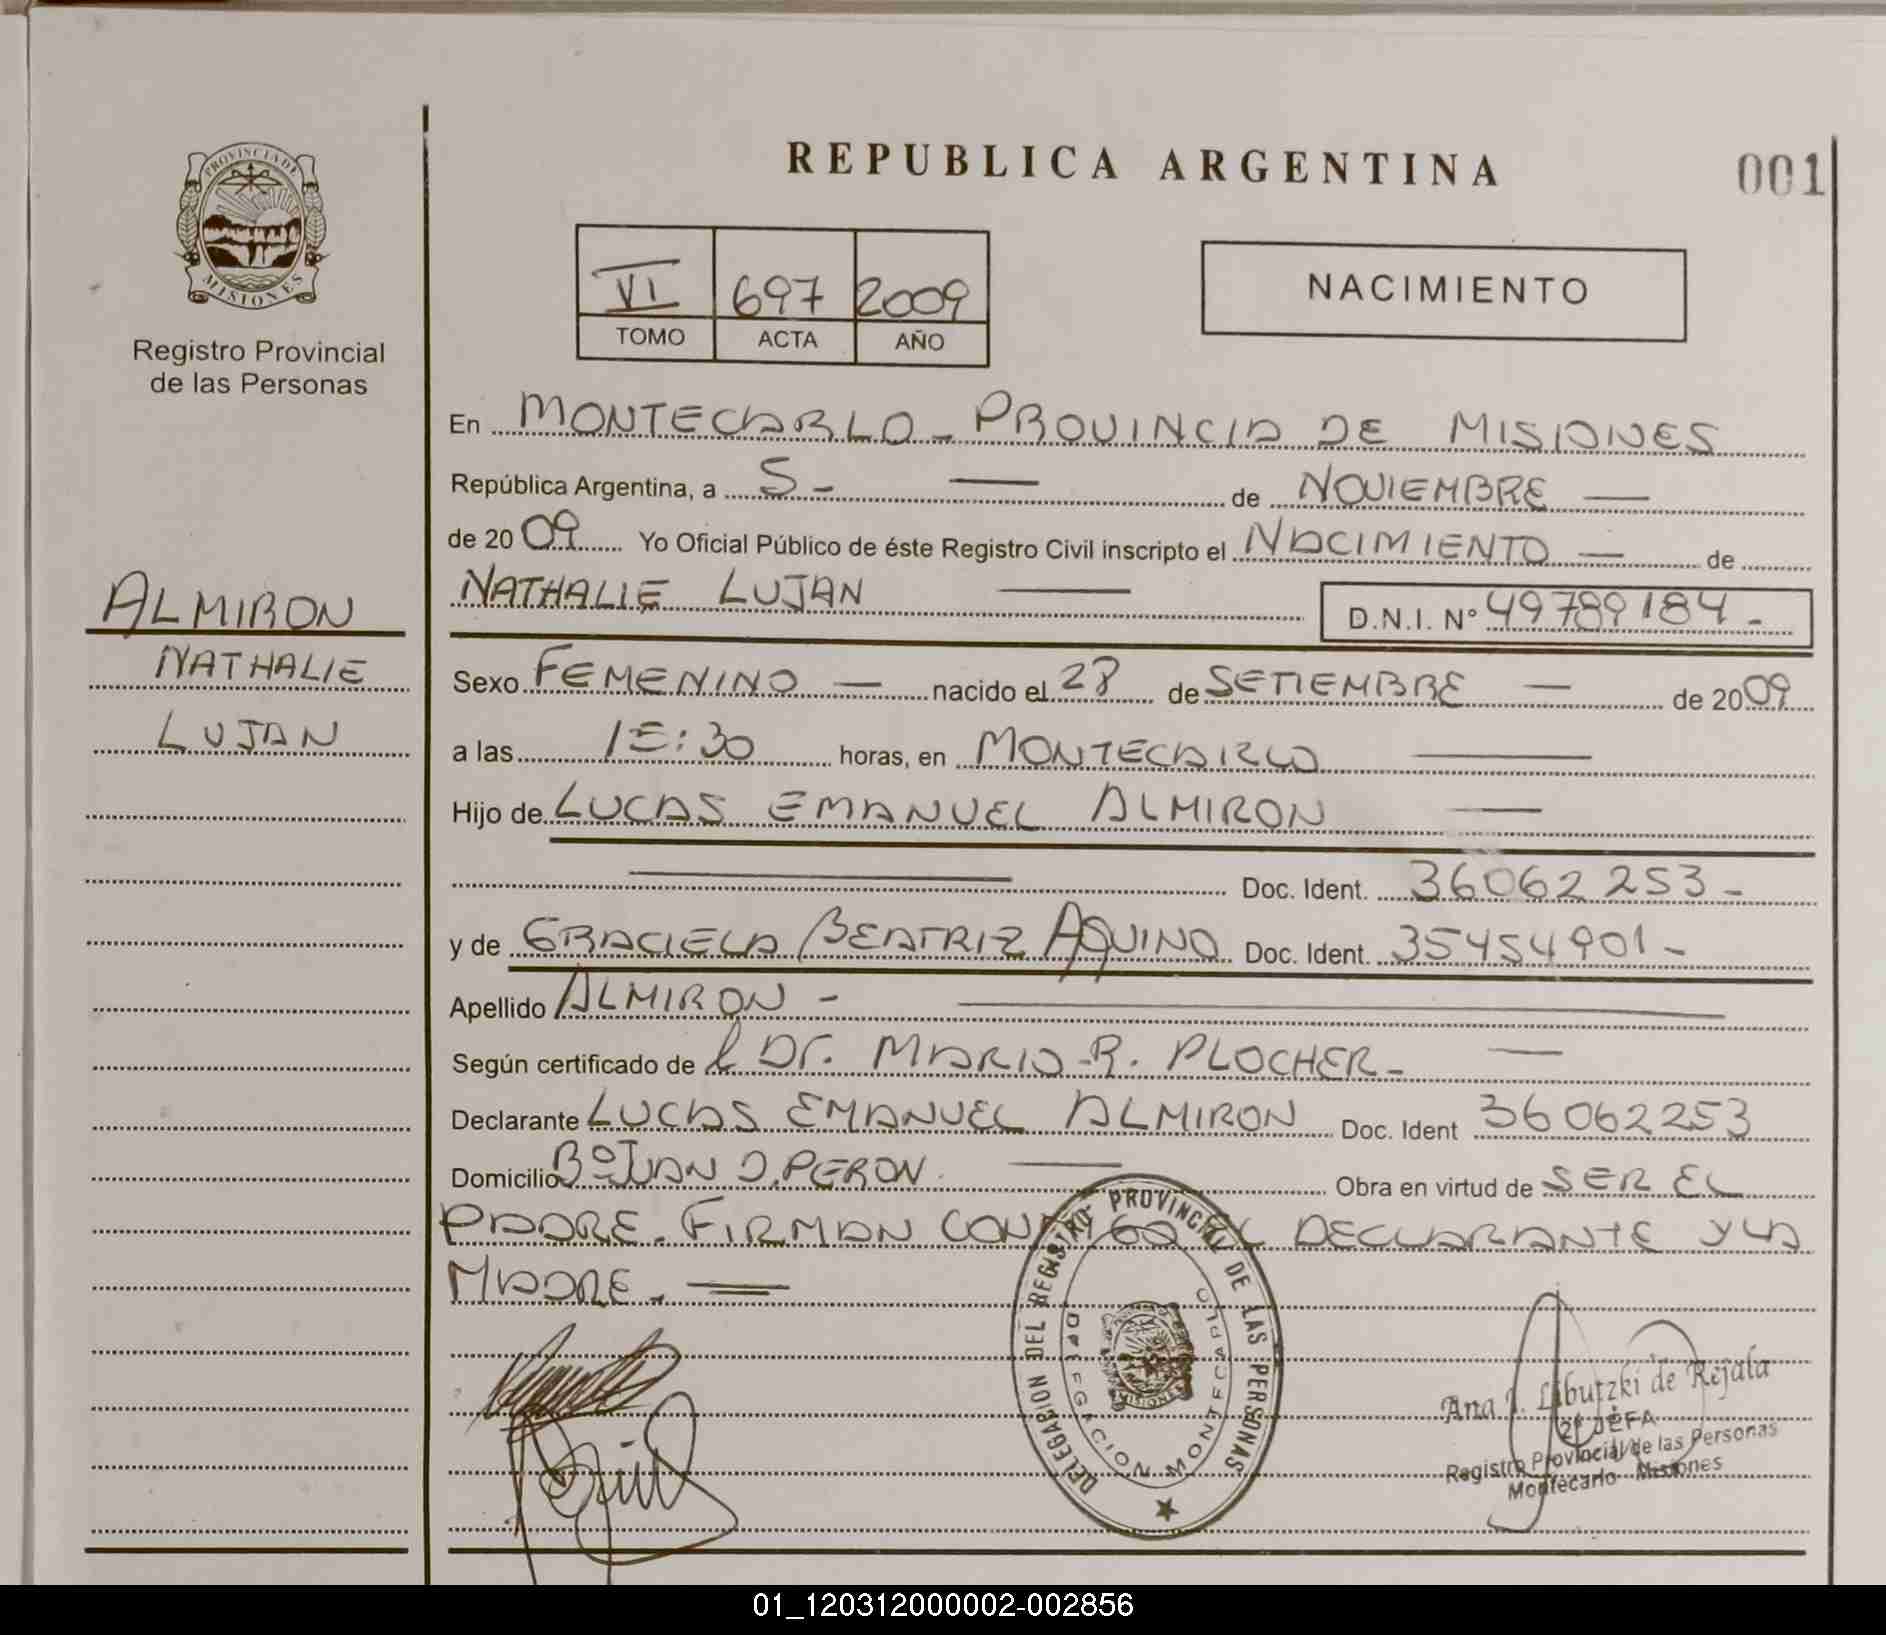 PROVINCIA DE
MISIONES
Registro Provincial
de las Personas
REPUBLICA ARGENTINA
001
VI 697 2009
TOMO ACTA AÑO
NACIMIENTO
En MONTECARLO - PROVINCIA DE MISIONES
República Argentina, a 5 - de NOVIEMBRE
de 2009 Yo Oficial Público de éste Registro Civil inscripto el NACIMIENTO de
NATHALIE LUJAN D.N.I. Nº 49789184 -
ALMIRON
NATHALIE
LUJAN
Sexo FEMENINO nacido el 28 de SETIEMBRE de 2009
a las 15:30 horas, en MONTECARLO
Hijo de LUCAS EMANUEL ALMIRON
Doc. Ident. 36062253 -
y de GRACIELA BEATRIZ AQUINO Doc. Ident. 35454901 -
Apellido ALMIRON -
Según certificado de l Dr. MARIO R. PLOCHER -
Declarante LUCAS EMANUEL ALMIRON Doc. Ident 36062253
Domicilio Bº JUAN D. PERON. Obra en virtud de SER EL
PADRE. FIRMAN CONMIGO EL DECLARANTE Y LA
MADRE.
DELEGACION DEL REGISTRO PROVINCIAL DE LAS PERSONAS
DELEGACION MONTECARLO
MISIONES
Ana I. Libutzki de Rejala
2º JEFA
Registro Provincial de las Personas
Montecarlo Misiones
01_120312000002-002856